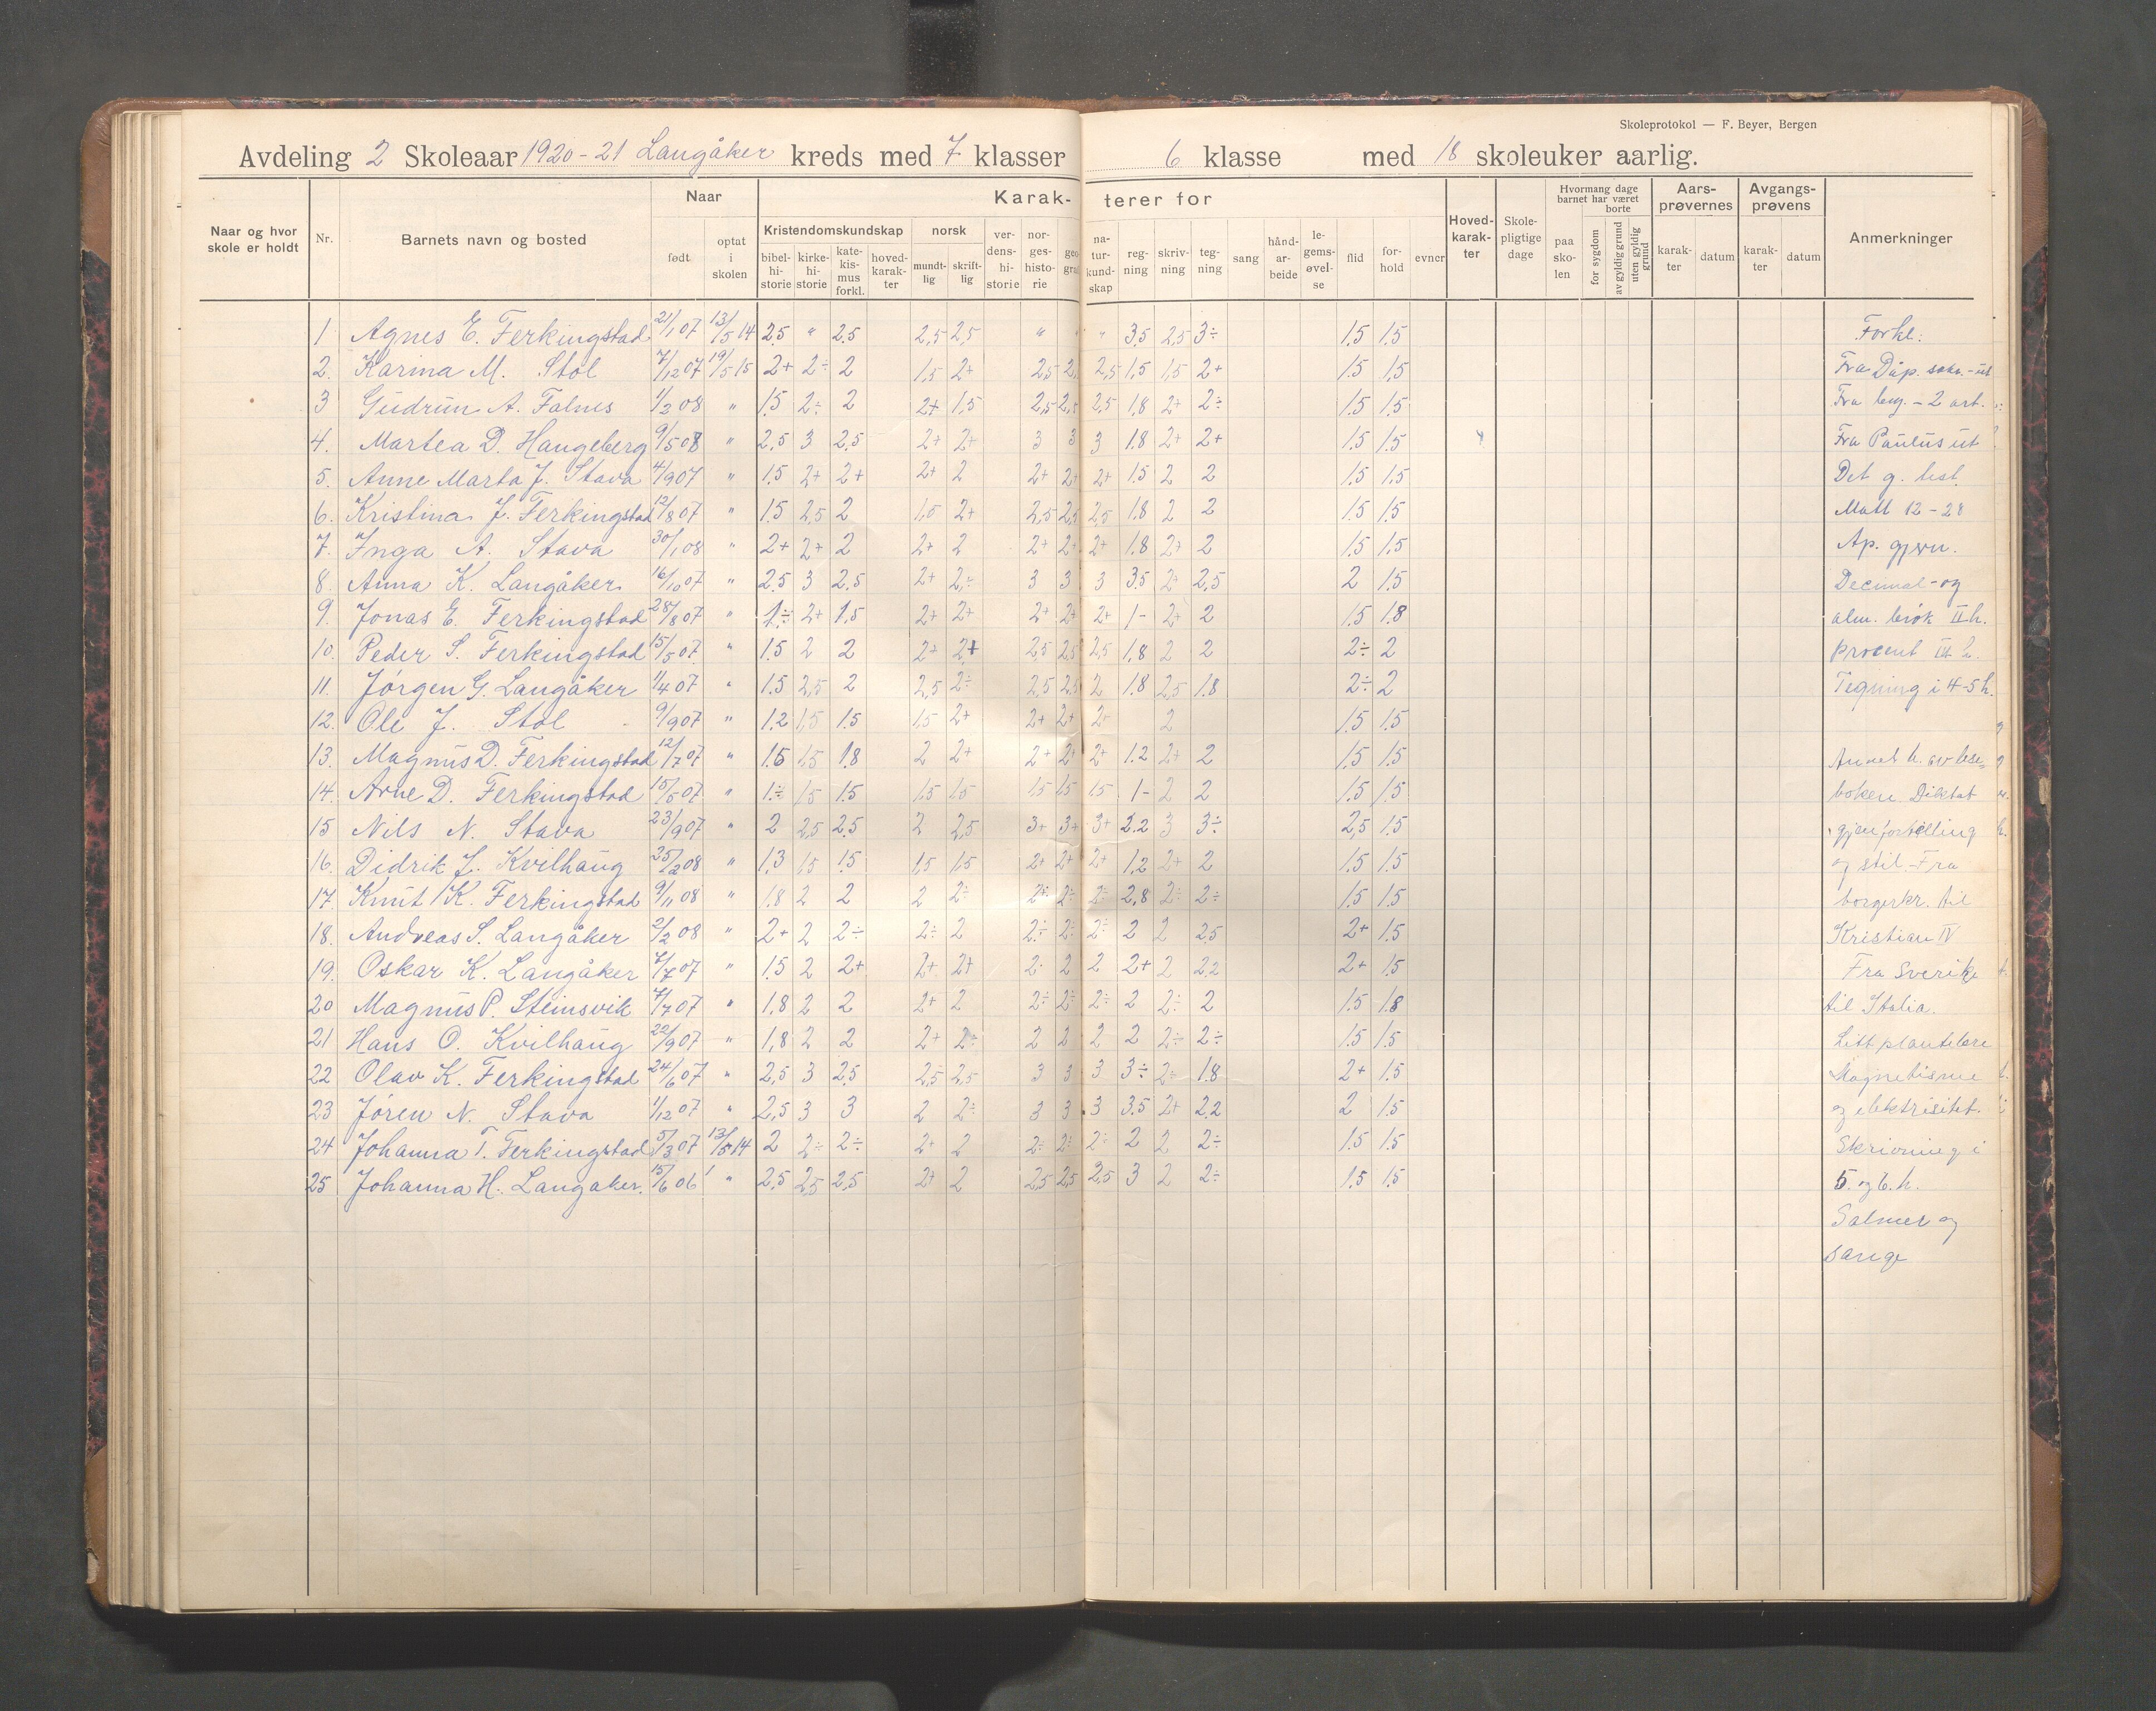 Skoleprotokol — F. Beyer, Bergen
Avdeling 2 Skoleaar 1920-21 Langåker kreds med 7 klasser 6 klasse med 18 skoleuker aarlig.
Naar og hvor skole er holdt | Nr. | Barnets navn og bosted | Naar | født | optat i skolen | Karakterer for | Kristendomskundskap | bibelhistorie | kirkehistorie | katekismus forkl. | hovedkarakter | norsk | mundtlig | skriftlig | verdenshistorie | norgeshistorie | geograf | naturkundskap | regning | skrivning | tegning | sang | håndarbeide | legemsøvelse | flid | forhold | evner | Hovedkarakter | Skolepligtige dage | Hvormang dage barnet har været borte | paa skolen | for sygdom | av gyldig grund | uten gyldig grund | Aarsprøvernes | karakter | datum | Avgangsprøvens | karakter | datum | Anmerkninger
1 Agnes E. Ferkingstad 21/1 07 13/5 14 2.5 " 2.5 2,5 2,5 " " " 3.5 2,5 3÷ 1.5 1.5 Forkl.
2. Karina M. Stol 7/12 07 19/5 15 2+ 2÷ 2 1,5 2+ 2,5 2, 2,5 1,5 1,5 2+ 1.5 1,5 Fra Dåp. sakr. - ut
3 Gudrun A. Falnes 1/2 08 " 1.5 2÷ 2 2+ 1,5 2,5 2,5 2,5 1,8 2+ 2÷ 1.5 1.5
4. Martea D. Haugeberg 9/5 08 " 2,5 3 2,5 2+ 2+ 3 3 3 1.8 2+ 2+ 1.5 1.5 Fra Paulus ut
5. Anne Marta J. Stava 4/9 07 " 1.5 2+ 2+ 2+ 2 2+ 2+ 2+ 1.5 2 2 1.5 1.5 Det g. test.
6. Kristina J. Ferkingstad 12/8 07 " 1.5 2,5 2 1,5 2+ 2,5 2,5 2,5 1.8 2 2 1.5 1.5 Matt 12-28
7. Inga A. Stava 30/1 08 " 2+ 2+ 2 2+ 2 2+ 2+ 2+ 1.8 2+ 2 1.5 1.5 Ap. gjern.
8. Anna K. Langåker 16/10 07 " 2.5 3 2.5 2+ 2÷ 3 3 3 3.5 2+ 2,5 2 1.5 Decimal- og
9. Jonas E. Ferkingstad 28/8 07 " 1÷ 2+ 1,5 2+ 2+ 2+ 2+ 2+ 1- 2+ 2 1.5 1.8 alm. brøk II h.
10. Peder S. Ferkingstad 15/5 07 " 1.5 2 2 2+ 2+ 2,5 2,5 2,5 1,8 2 2 2÷ 2 procent III h.
11. Jørgen G. Langåker 1/4 07 " 1.5 2,5 2 2,5 2÷ 2,5 2,5 2 1.8 2,5 1.8 2÷ 2 Tegning i 4-5 h.
12. Ole J. Stol 9/9 07 " 1.2 1,5 1.5 1.5 2+ 2+ 2+ 2+ 2 1.5 1.5
13. Magnus D. Ferkingstad 12/7 07 " 1.5 1.5 1.8 2 2+ 2+ 2+ 2+ 1.2 2+ 2 1,5 1.5 Annet h. av lese=
14. Arne D. Ferkingstad 15/5 07 " 1÷ 1.5 1.5 1,5 1.5 1.5 1.5 1.5 1- 2 2 1.5 1.5 boken. Diktat
15 Nils N. Stava 23/9 07 " 2 2,5 2.5 2 2,5 3+ 3+ 3+ 2.2 3 3÷ 2,5 1.5 gjenfortelling
16. Didrik J. Kvilhaug 25/2 08 " 1,3 1,5 1.5 1,5 1.5 2+ 2+ 2+ 1,2 2+ 2 1.5 1.5 og stil. - Fra
17. Knut K. Ferkingstad 9/11 08 " 1.8 2 2 2 2÷ 2÷ 2÷ 2÷ 2,8 2÷ 2÷ 1.5 1.5 borgerkr. til
18. Andreas S. Langåker 2/2 08 " 2+ 2 2÷ 2÷ 2 2÷ 2÷ 2÷ 2 2 2.5 2+ 1.5 Kristian IV
19. Oskar K. Langåker 7/7 07 " 1.5 2 2+ 2+ 2+ 2 2 2 2+ 2 2,2 2+ 1.5 Fra Sverike
20 Magnus P. Steinsvik 7/7 07 " 1,8 2 2 2+ 2 2÷ 2÷ 2÷ 2 2÷ 2 1.5 1.8 til Italia.
21 Hans O. Kvilhaug 22/9 07 " 1,8 2 2 2+ 2÷ 2 2 2 2 2÷ 2÷ 1.5 1.5 Litt plantelære
22 Olav K. Ferkingstad 24/6 07 " 2,5 3 2.5 2,5 2,5 3 3 3 3÷ 2÷ 1.8 2+ 1.5 Magnetisme
23 Jøren N. Stava 1/12 07 " 2,5 3 3 2 2÷ 3 3 3 3.5 2+ 2.2 2 1.5 og elektrisitet.
24 Johanna T. Ferkingstad 5/3 07 13/5 14 2 2÷ 2÷ 2+ 2 2÷ 2÷ 2÷ 2 2 2÷ 1.5 1.5 Skrivning i
25 Johanna H. Langaker. 15/6 06 " 2,5 2,5 2,5 2+ 2 2,5 2,5 2,5 3 2 2÷ 1.5 1.5 5. og 6. h.
Salmer og
sange